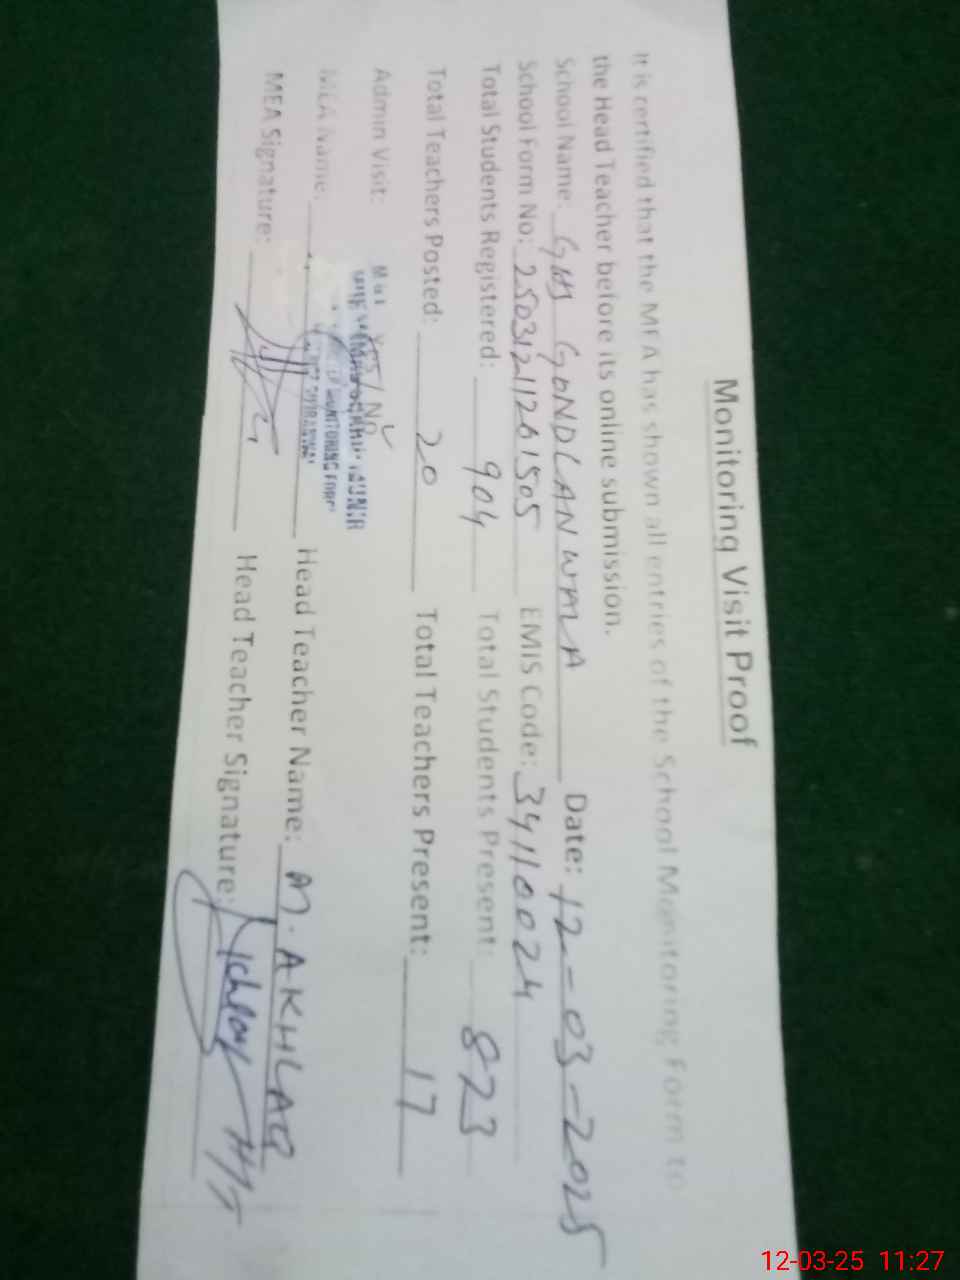 Monitoring Visit Proof
It is certified that the MEA has shown all entries of the School Monitoring Form to
the Head Teacher before its online submission.
School Name: GHS GONDLANWALA Date: 12-03-2025
School Form No: 25031211261505 EMIS Code: 34110024
Total Students Registered: 904 Total Students Present: 823
Total Teachers Posted: 20 Total Teachers Present: 17
Admin Visit: Yes/No
MEA Name: Head Teacher Name: M. AKHLAQ
MEA Signature: Head Teacher Signature:
12-03-25 11:27